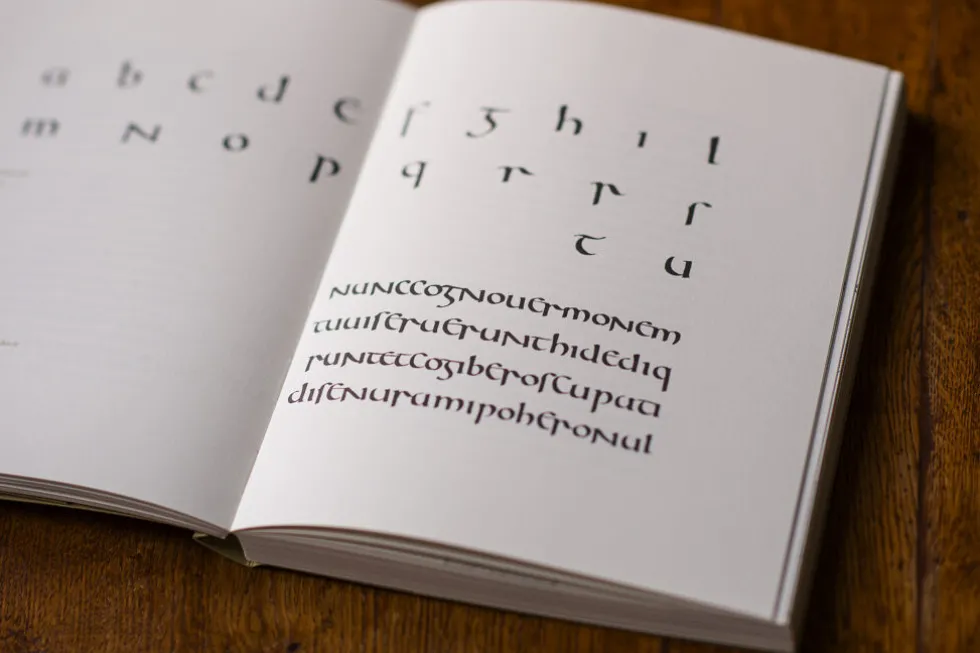 a b c d e f g h i l
m N o p q r r ſ
t u
NuNccogNouermoNem
tuuiſerueruNthidediq
ruNtetcogiberoſcupati
diſeNuramipoheroNul